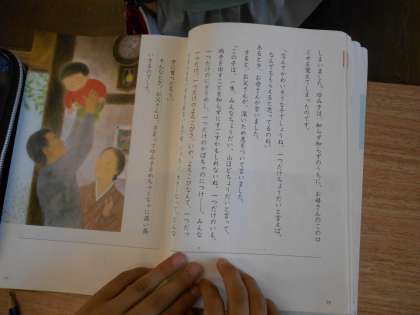 しまいました。ゆみ子は、知らず知らずのうちに、お母さんのこの口
ぐせを覚えてしまったのです。
「なんてかわいそうな子でしょうね。一つだけちょうだいと言えば、
なんでももらえると思ってるのね。」
あるとき、お母さんが言いました。
すると、お父さんが、深いため息をついて言いました。
「この子は、一生、みんなちょうだい、山ほどちょうだいと言って、
両手を出すことを知らずにすごすかもしれないね。一つだけのいも、
一つだけのにぎりめし、一つだけのかぼちゃのにつけ――。みんな
一つだけ。一つだけのよろこびさ。いや、よろこびなんて、一つだっ
子に育つだろう。」
そんなとき、お父さんは、きまってゆみ子をめちゃくちゃに高い高
いするのでした。